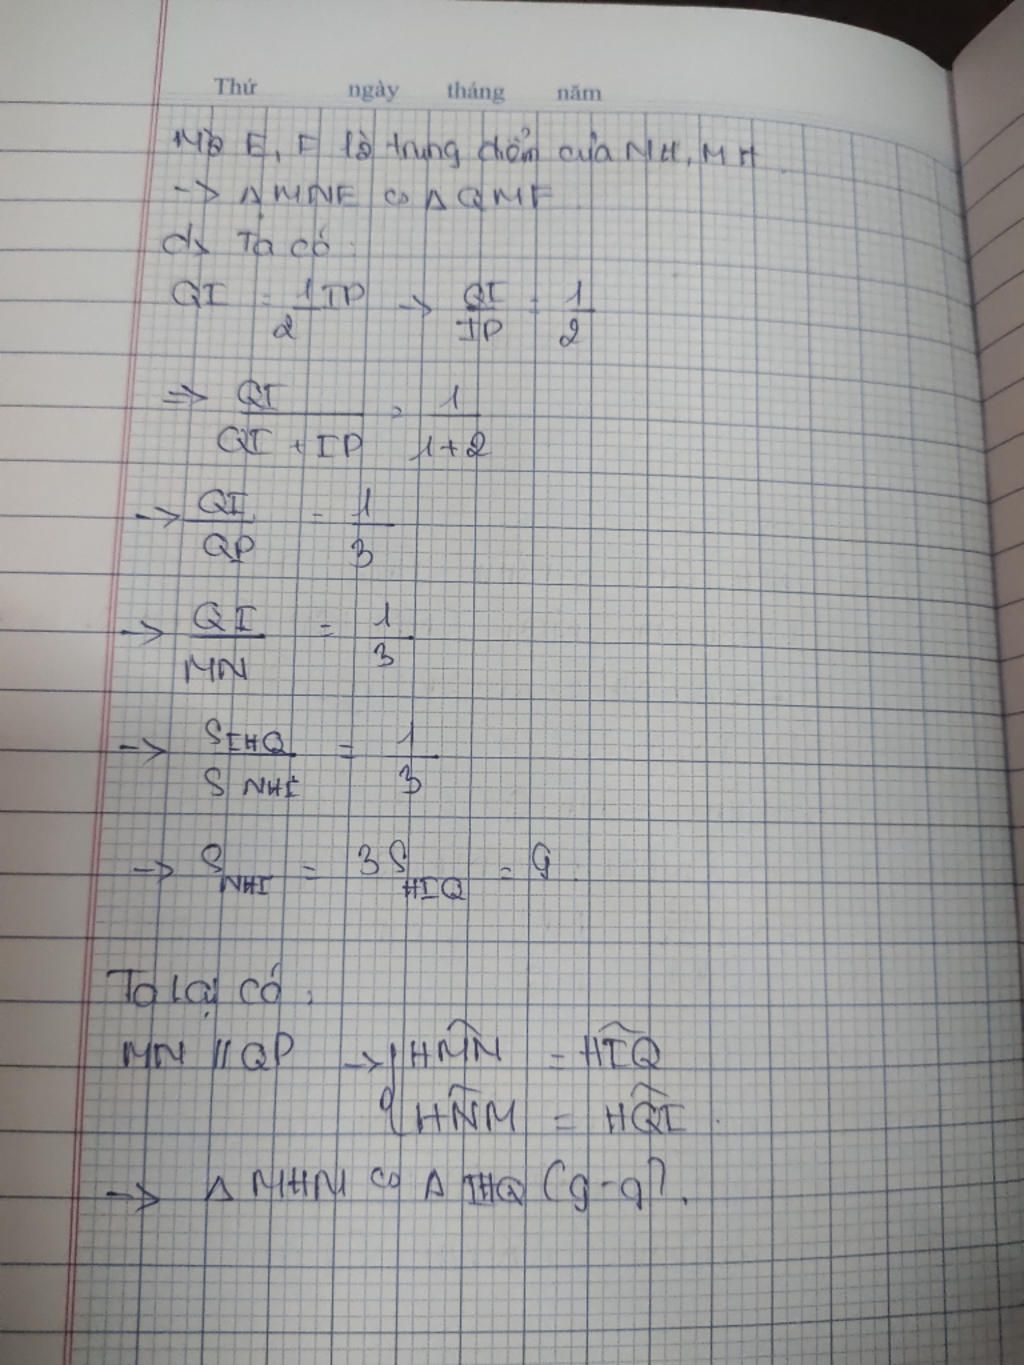 Thứ ngày tháng năm
Mà E, F là trung điểm của NH, MH
-> Δ MNE ∽ Δ QMF
d, Ta có:
QI = 1/2 IP -> QI/IP = 1/2
=> QI/(QI + IP) = 1/(1+2)
-> QI/QP = 1/3
-> QI/MN = 1/3
-> S IHQ / S NHI = 1/3
-> S NHI = 3 S HIQ = 9.
Ta lại có:
MN // QP -> { HMN = HIQ
HNM = HQI.
-> Δ MHN ∽ Δ IHQ (g-g).